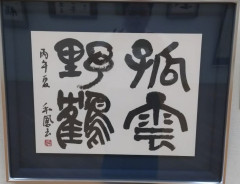 孤雲
野鶴
丙午夏 禾園書